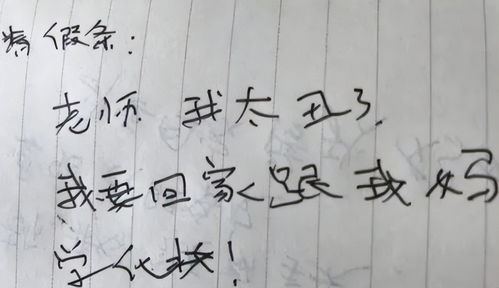 请假条:
老师 我太丑了,
我要回家跟我妈
学化妆!